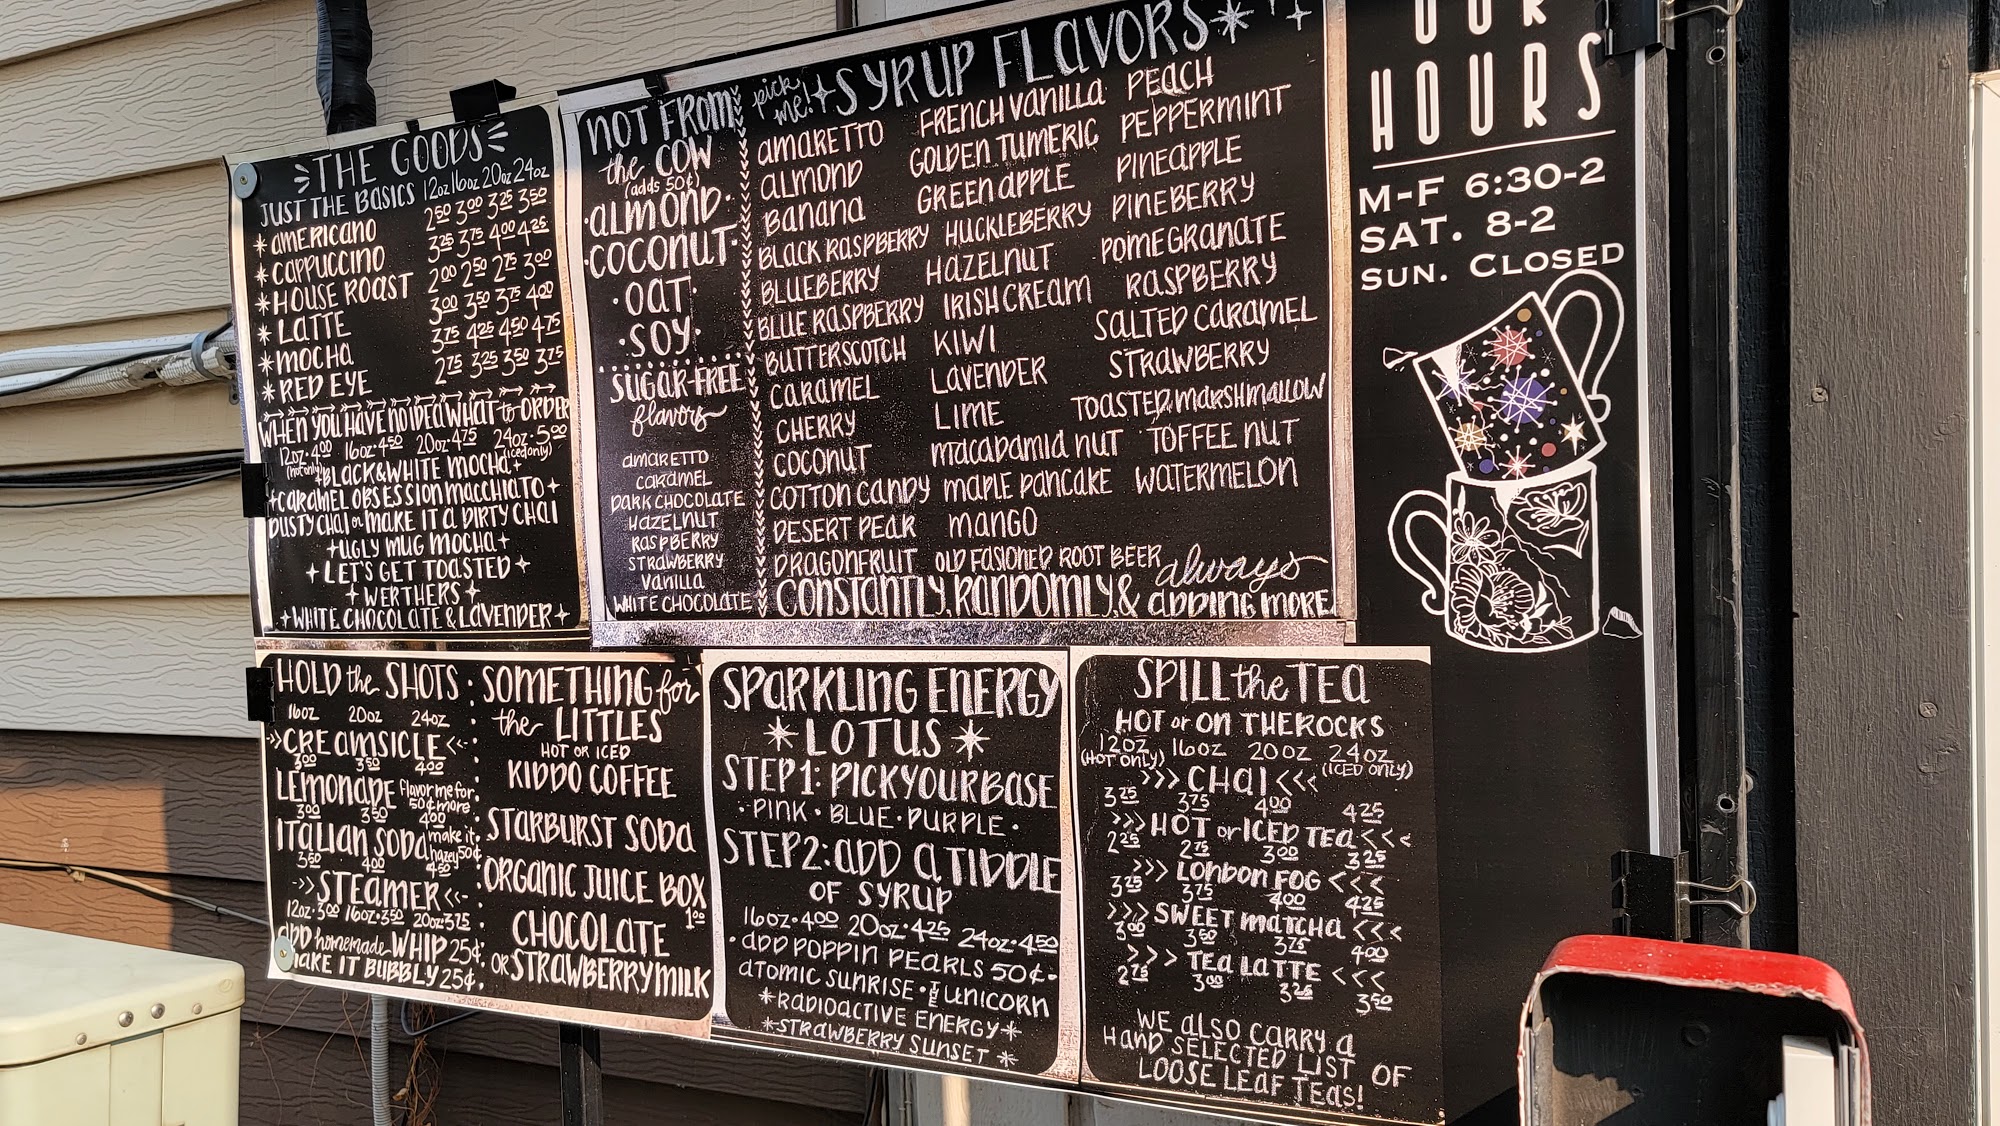 THE GOODS
JUST THE BASICS 12oz 16oz 20oz 24oz
* AMERICANO 2.50 3.00 3.25 3.50
* CAPPUCCINO 3.25 3.75 4.00 4.25
* HOUSE ROAST 2.00 2.50 2.75 3.00
* LATTE 3.00 3.50 3.75 4.00
* MOCHA 3.75 4.25 4.50 4.75
* RED EYE 2.75 3.25 3.50 3.75
WHEN YOU HAVE NO IDEA WHAT to ORDER
12oz·4.00 16oz·4.50 20oz·4.75 24oz·5.00
(hot only) (iced only)
BLACK & WHITE MOCHA
CARAMEL OBSESSION MACCHIATO
DUSTY CHAI or MAKE IT A DIRTY CHAI
UGLY MUG MOCHA
LET'S GET TOASTED
WERTHERS
WHITE CHOCOLATE & LAVENDER
NOT FROM
the COW
(adds 50¢)
·ALMOND·
·COCONUT·
·OAT·
·SOY·
SUGAR-FREE
flavors
AMARETTO
CARAMEL
DARK CHOCOLATE
HAZELNUT
RASPBERRY
STRAWBERRY
VANILLA
WHITE CHOCOLATE
pick me! SYRUP FLAVORS
AMARETTO
ALMOND
BANANA
BLACK RASPBERRY
BLUEBERRY
BLUE RASPBERRY
BUTTERSCOTCH
CARAMEL
CHERRY
COCONUT
COTTON CANDY
DESERT PEAR
DRAGONFRUIT
FRENCH VANILLA
GOLDEN TUMERIC
GREEN APPLE
HUCKLEBERRY
HAZELNUT
IRISH CREAM
KIWI
LAVENDER
LIME
MACADAMIA NUT
MAPLE PANCAKE
MANGO
OLD FASIONED ROOT BEER
PEACH
PEPPERMINT
PINEAPPLE
PINEBERRY
POMEGRANATE
RASPBERRY
SALTED CARAMEL
STRAWBERRY
TOASTED MARSHMALLOW
TOFFEE NUT
WATERMELON
CONSTANTLY, RANDOMLY, & always ADDING MORE
OUR
HOURS
M-F 6:30-2
SAT. 8-2
SUN. CLOSED
HOLD the SHOTS
16oz 20oz 24oz
CREAMSICLE
3.00 3.50 4.00
LEMONADE flavor me for 50¢ more
3.00 3.50 4.00
ITALIAN SODA make it hazey 50¢
3.50 4.00 4.50
STEAMER
12oz·3.00 16oz·3.50 20oz·3.75
ADD homemade WHIP 25¢
MAKE IT BUBBLY 25¢
SOMETHING for
the LITTLES
HOT OR ICED
KIDDO COFFEE
STARBURST SODA
ORGANIC JUICE BOX
1.00
CHOCOLATE
OR STRAWBERRY MILK
SPARKLING ENERGY
* LOTUS *
STEP 1: PICK YOUR BASE
· PINK · BLUE · PURPLE ·
STEP 2: ADD A TIDDLE
OF SYRUP
16oz·4.00 20oz·4.25 24oz·4.50
·ADD POPPIN PEARLS 50¢·
ATOMIC SUNRISE · THE UNICORN
*RADIOACTIVE ENERGY*
*STRAWBERRY SUNSET*
SPILL the TEA
HOT or ON THE ROCKS
12OZ 16OZ 20OZ 24OZ
(HOT ONLY) (ICED ONLY)
>>> CHAI <<<
3.25 3.75 4.00 4.25
>>> HOT or ICED TEA <<<
2.25 2.75 3.00 3.25
>>> LONDON FOG <<<
3.25 3.75 4.00 4.25
>>> SWEET MATCHA <<<
3.00 3.50 3.75 4.00
>>> TEA LATTE <<<
2.75 3.00 3.25 3.50
WE ALSO CARRY A
HAND SELECTED LIST OF
LOOSE LEAF TEAS!